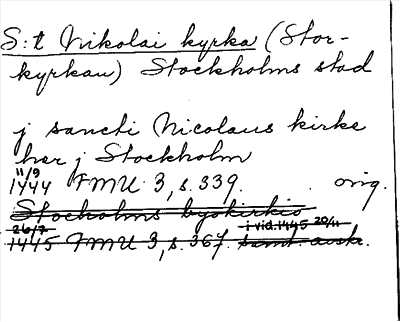 S:t Nikolai kyrka (Stor-
kyrkan) Stockholms stad
j sancti Nicolaus kirke
her j Stockholm
11/9
1444 FMU 3, s. 339. orig.
Stocholms bykirkio
26/7 i vid. 1445 20/11
1445 FMU 3, s. 367. samt. avskr.